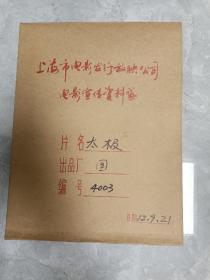 上海市电影发行放映公司
电影宣传资料袋
片名 太极
出品厂 国
编号 4003
12.9.21